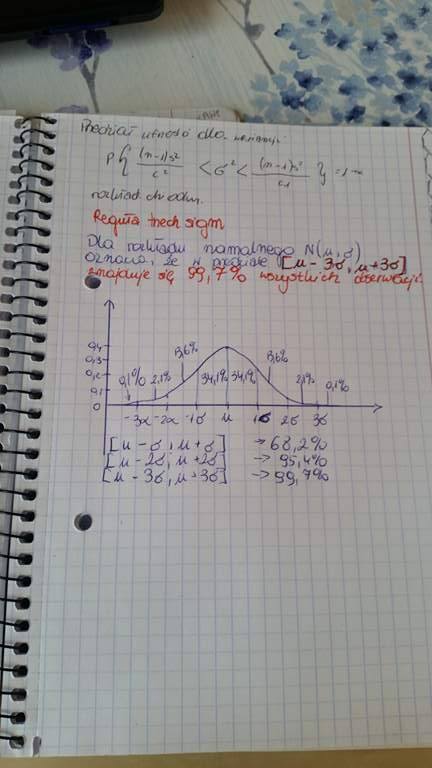 Przedział ufności dla wariancji
P{ (n-1)s² / c² < σ² < (n-1)s² / c1 } = 1-α
rozkład chi odm.
Reguła trzech sigm
Dla rozkładu normalnego N(μ, σ)
oznacza, że w przedziale [μ - 3σ, μ + 3σ]
znajduje się 99,7% wszystkich obserwacji.
0,4
0,3
0,2
0,1
0
0,1% 2,1% 13,6% 34,1% 34,1% 13,6% 2,1% 0,1%
-3α -2α -1σ μ 1σ 2σ 3σ
[μ - σ, μ + σ] → 68,2%
[μ - 2σ, μ + 2σ] → 95,4%
[μ - 3σ, μ + 3σ] → 99,7%